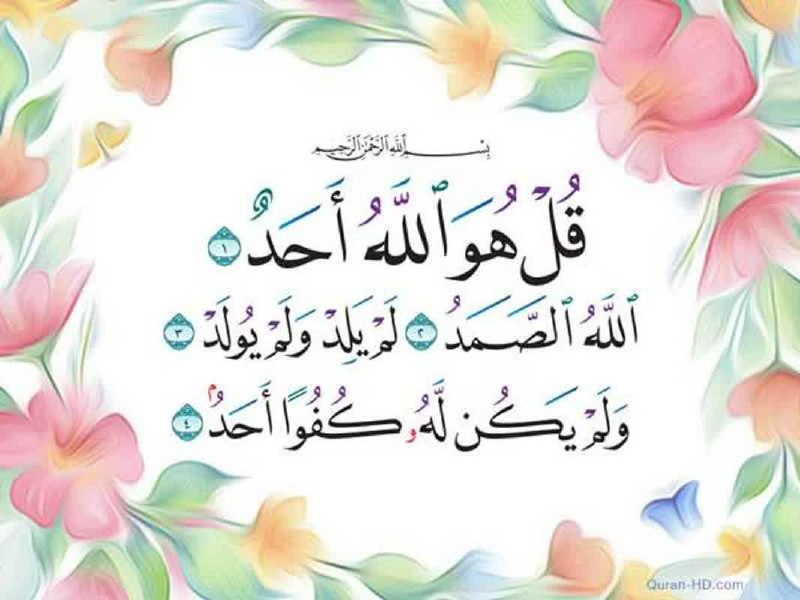 بِسْمِ اللَّهِ الرَّحْمَٰنِ الرَّحِيمِ
قُلْ هُوَ ٱللَّهُ أَحَدٌ ١
ٱللَّهُ ٱلصَّمَدُ ٢ لَمْ يَلِدْ وَلَمْ يُولَدْ ٣
وَلَمْ يَكُن لَّهُۥ كُفُوًا أَحَدُۢ ٤
Quran-HD.com